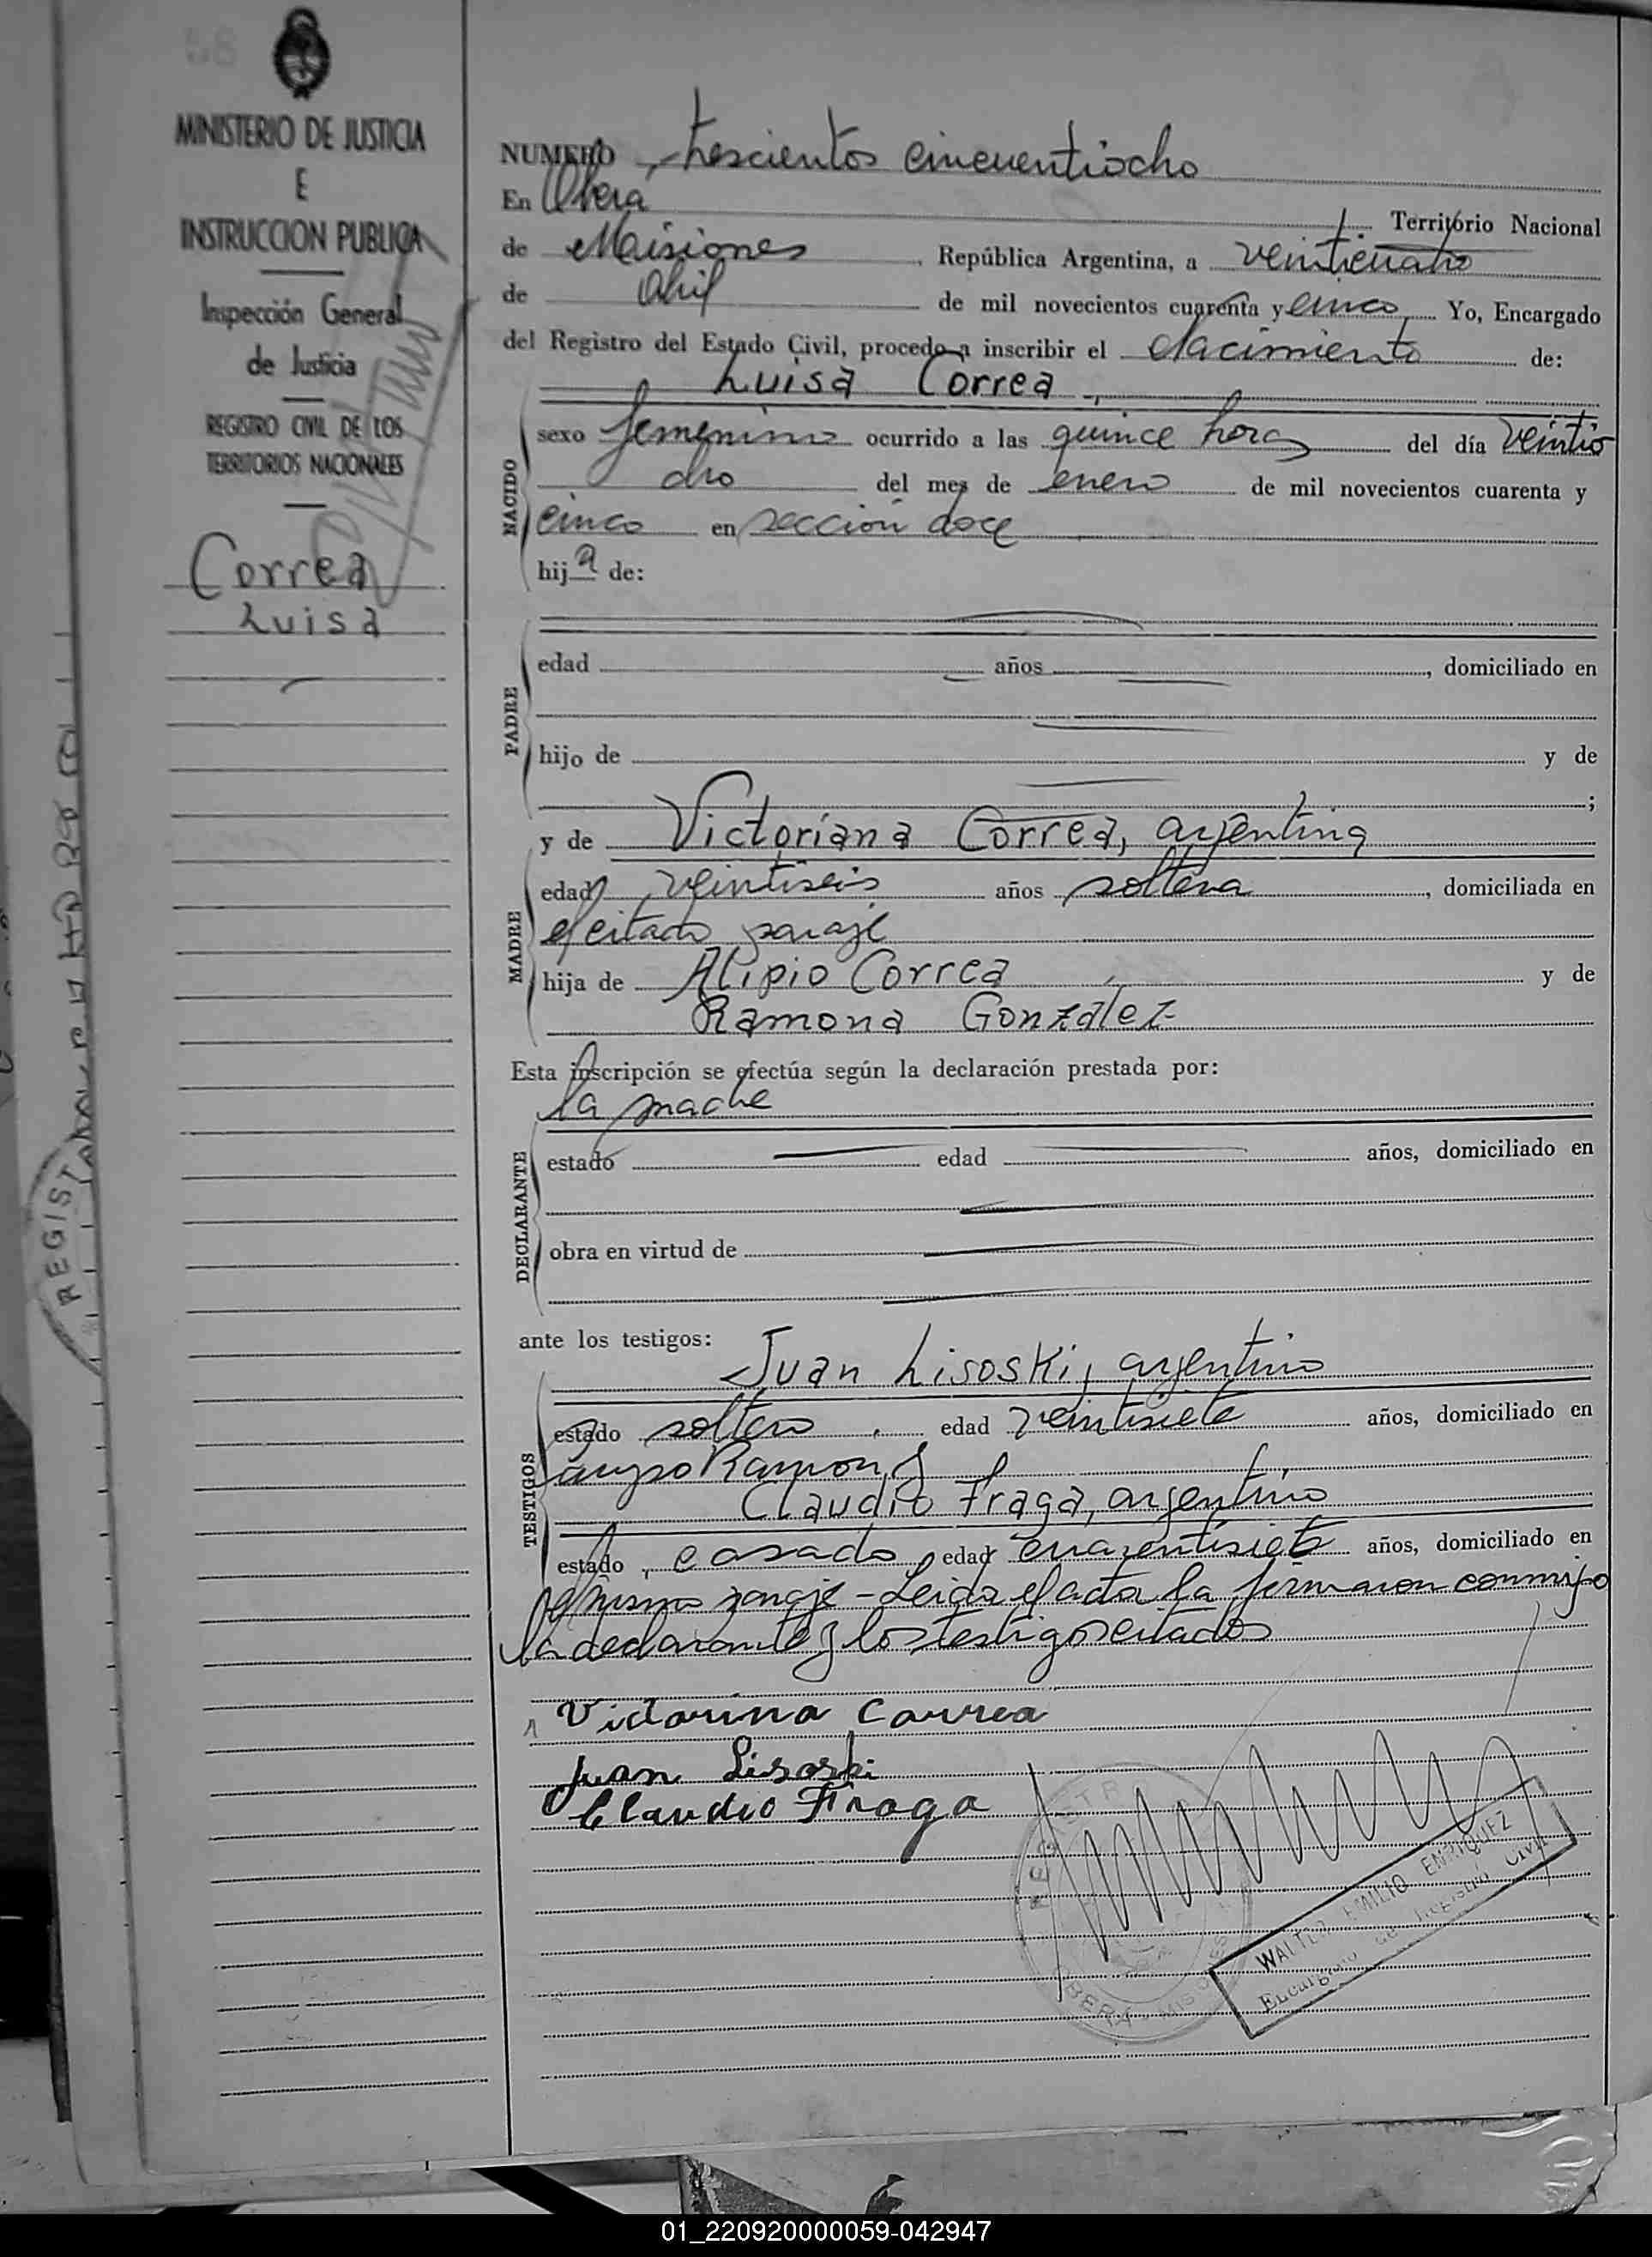 58
MINISTERIO DE JUSTICIA
E
INSTRUCCION PUBLICA
Inspección General
de Justicia
REGISTRO CIVIL DE LOS
TERRITORIOS NACIONALES
Correa
Luisa
NUMERO trescientos cincuentiocho
En Oberá Territorio Nacional
de Misiones, República Argentina, a veinticuatro
de abril de mil novecientos cuarenta y cinco Yo, Encargado
del Registro del Estado Civil, procedo a inscribir el Nacimiento de:
Luisa Correa
NACIDO
sexo femenino ocurrido a las quince horas del día veintio
cho del mes de enero de mil novecientos cuarenta y
cinco en sección doce
hija de:
PADRE
edad años, domiciliado en
hijo de y de
;
MADRE
y de Victoriana Correa, argentina
edad veintiseis años soltera, domiciliada en
el citado paraje
hija de Alipio Correa y de
Ramona Gonzalez
Esta inscripción se efectúa según la declaración prestada por:
la madre
DECLARANTE
estado edad años, domiciliado en
obra en virtud de
ante los testigos:
TESTIGOS
Juan Lisoski, argentino
estado soltero, edad veintisiete años, domiciliado en
Ramon y
Claudio Fraga, argentino
estado casado, edad cuarentisiete años, domiciliado en
el mismo paraje - Leida el acta la firmaron conmigo
la declarante y los testigos citados
Victorina Correa
Juan Lisoski
Claudio Fraga
REGISTR
OBERA MISIONES
WALTER EMILIO ENRIQUEZ
Encargado de Registro Civil
REGIST
01_220920000059-042947